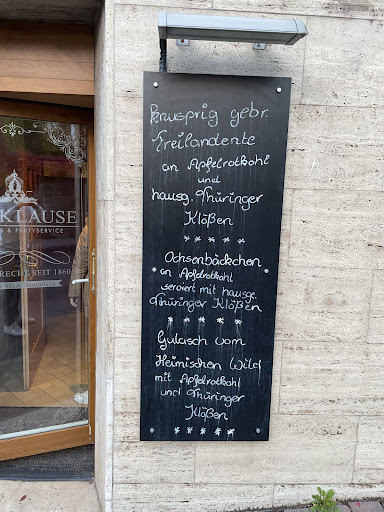 KLAUSE
& PARTYSERVICE
RECHT SEIT 1860
knusprig gebr.
Freilandente
an Apfelrotkohl
und
hausg. Thüringer
Klößen
* * * * *
Ochsenbäckchen
an Apfelrotkohl
serviert mit hausge.
Thüringer Klößen
* * * * *
Gulasch vom
Heimischen Wild
mit Apfelrotkohl
und Thüringer
Klößen
* * * * *